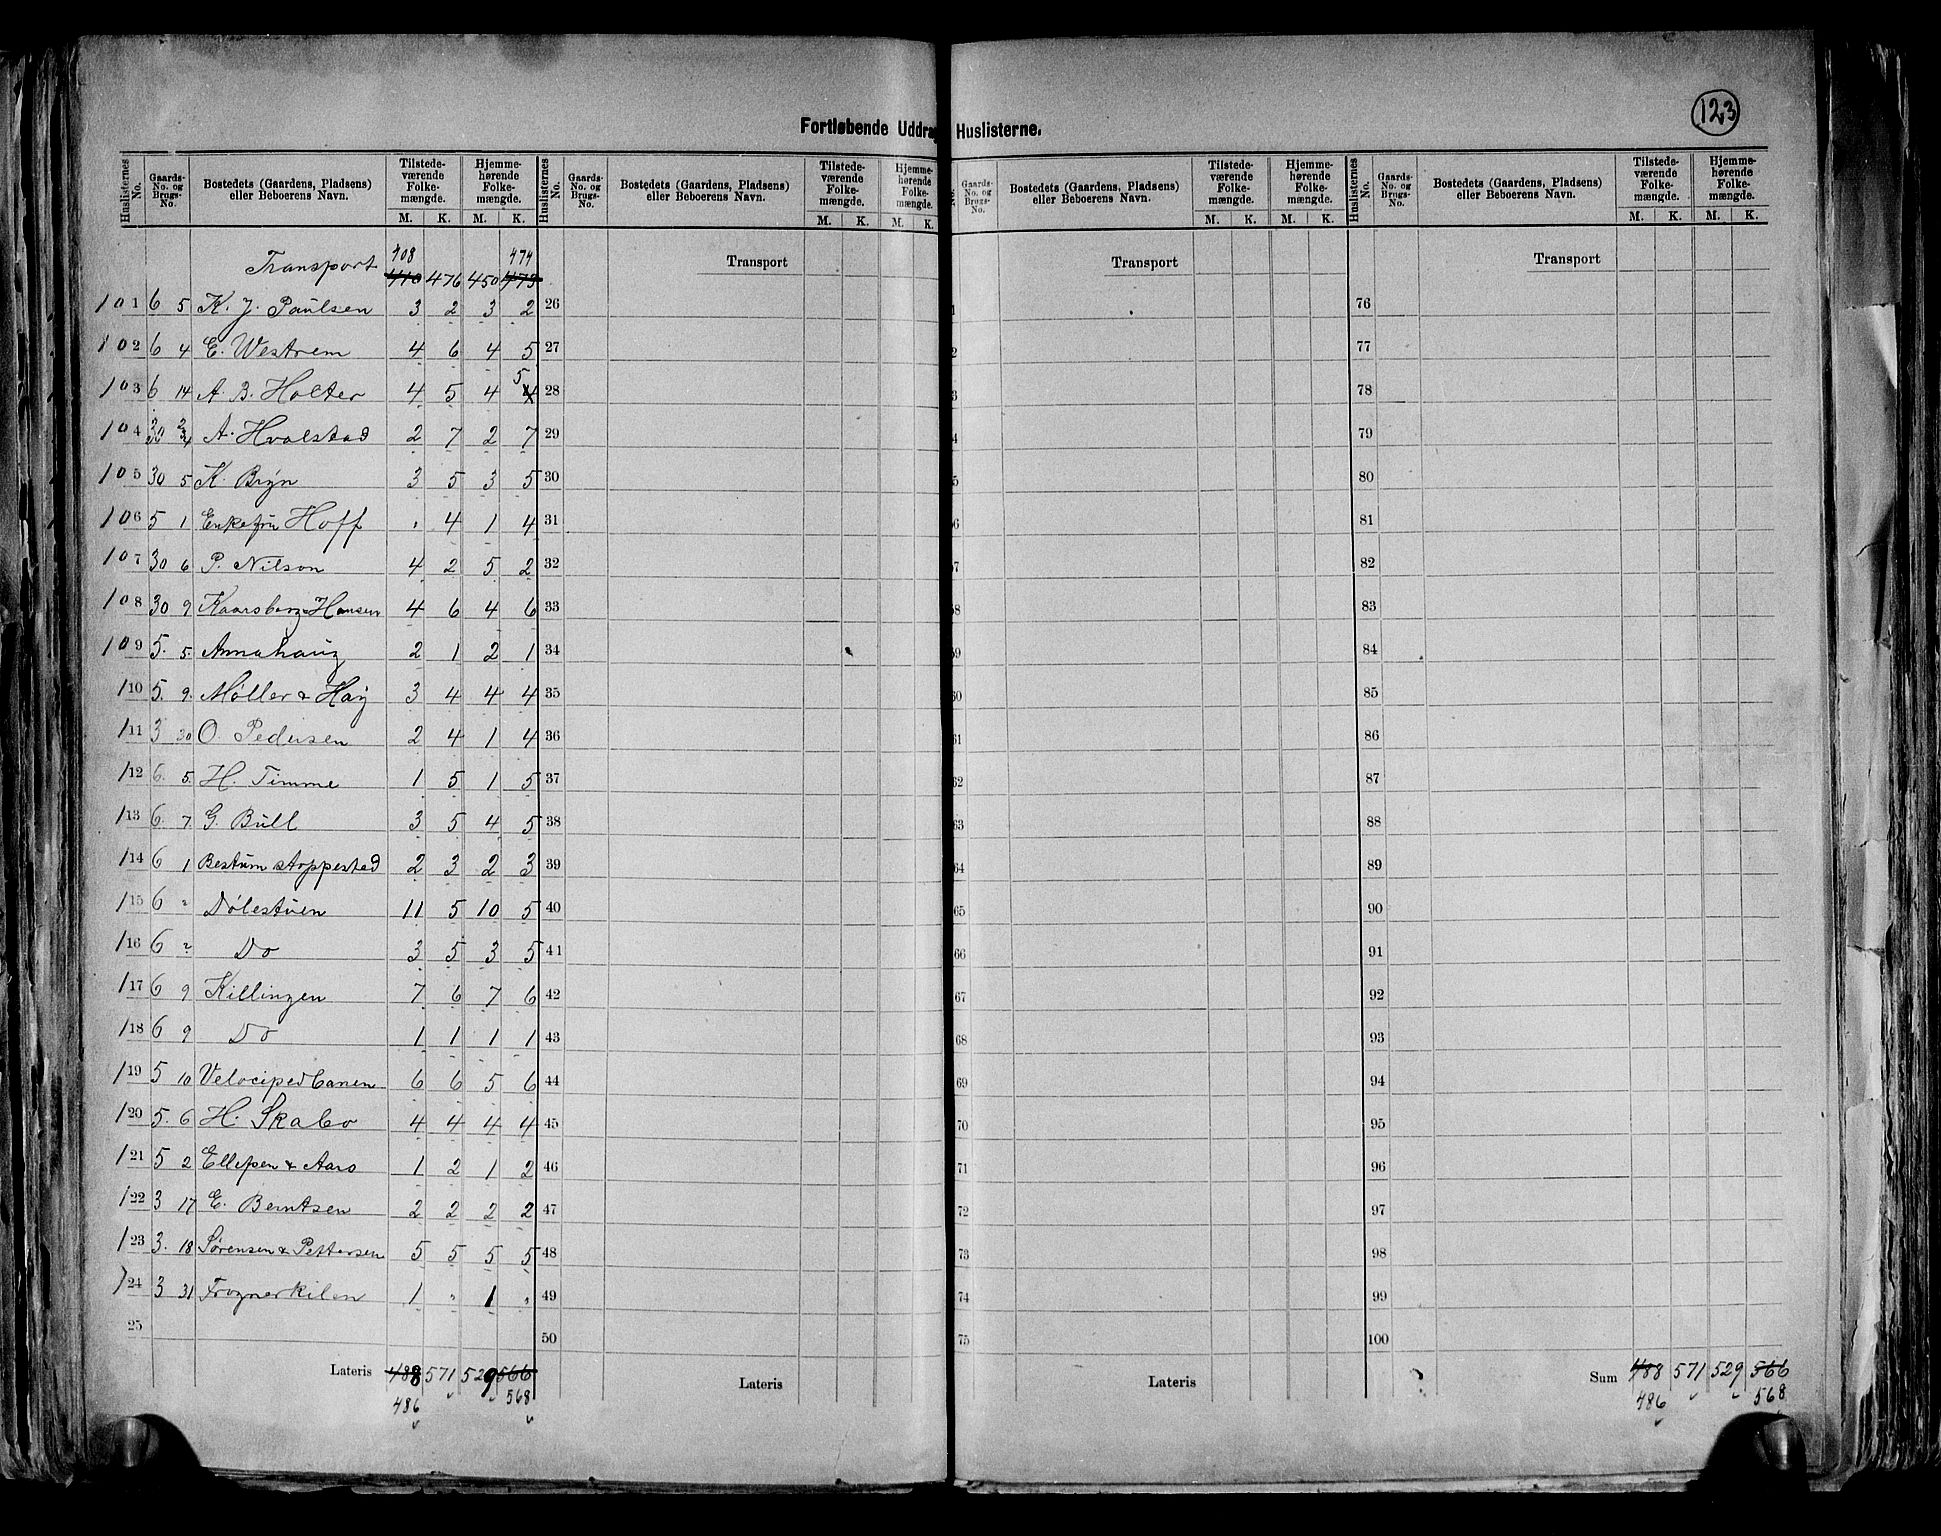 123
Fortløbende Uddrag Huslisterne.
Huslisternes No. Gaards-No. og Brugs-No. Bostedets (Gaardens, Pladsens) eller Beboerens Navn. Tilstedeværende Folkemængde. M. K. Hjemmehørende Folkemængde. M. K.
Huslisternes No. Gaards-No. og Brugs-No. Bostedets (Gaardens, Pladsens) eller Beboerens Navn. Tilstedeværende Folkemængde. M. K. Hjemmehørende Folkemængde. M. K.
No. Gaards-No. og Brugs-No. Bostedets (Gaardens, Pladsens) eller Beboerens Navn. Tilstedeværende Folkemængde. M. K. Hjemmehørende Folkemængde. M. K.
Huslisternes No. Gaards-No. og Brugs-No. Bostedets (Gaardens, Pladsens) eller Beboerens Navn. Tilstedeværende Folkemængde. M. K. Hjemmehørende Folkemængde. M. K.
408 474
Transport 410 476 450 473 Transport Transport Transport
101 6 5 K. J. Paulsen 3 2 3 2 26 1 76
102 6 4 E. Westrem 4 6 4 5 27 2 77
103 6 14 A. B. Holter 4 5 4 4 5 28 3 78
104 A. Hvalstad 2 7 2 7 29 4 79
105 30 5 K. Bryn 3 5 3 5 30 5 80
106 5 1 Enkefru Hoff " 4 1 4 31 6 81
107 30 6 P. Nilson 4 2 5 2 32 7 82
108 30 9 Kaarsberg Hansen 4 6 4 6 33 58 83
109 5. 5. Annahaug 2 1 2 1 34 59 84
110 5. 9. Møller & Høy 3 4 4 4 35 60 85
111 3 30 O. Pedersen 2 4 1 4 36 61 86
112 6. 5. H. Timme 1 5 1 5 37 62 87
113 6. 7 G. Bull 3 5 4 5 38 63 88
114 6 1 Bestum stoppested 2 3 2 3 39 64 89
115 6 " Dølestuen 11 5 10 5 40 65 90
116 6 2 Do 3 5 3 5 41 66 91
117 6 9 Killingen 7 6 7 6 42 67 92
118 6 9 Do 1 1 1 1 43 68 93
119 5 10 Velocipedbanen 6 6 5 6 44 69 94
120 5. 6 H. Skabo 4 4 4 4 45 70 95
121 5 2 Ellefsen & Aars 1 2 1 2 46 71 96
122 3 17 E. Berntsen 2 2 2 2 47 72 97
123 3. 18 Sørensen & Pettersen 5 5 5 5 48 73 98
124 3 31 Frognerkilen 1 " 1 " 49 74 99
25 50 75 100
Lateris 488 571 529 566 Lateris Lateris Sum 488 571 529 566
486 568 486 568